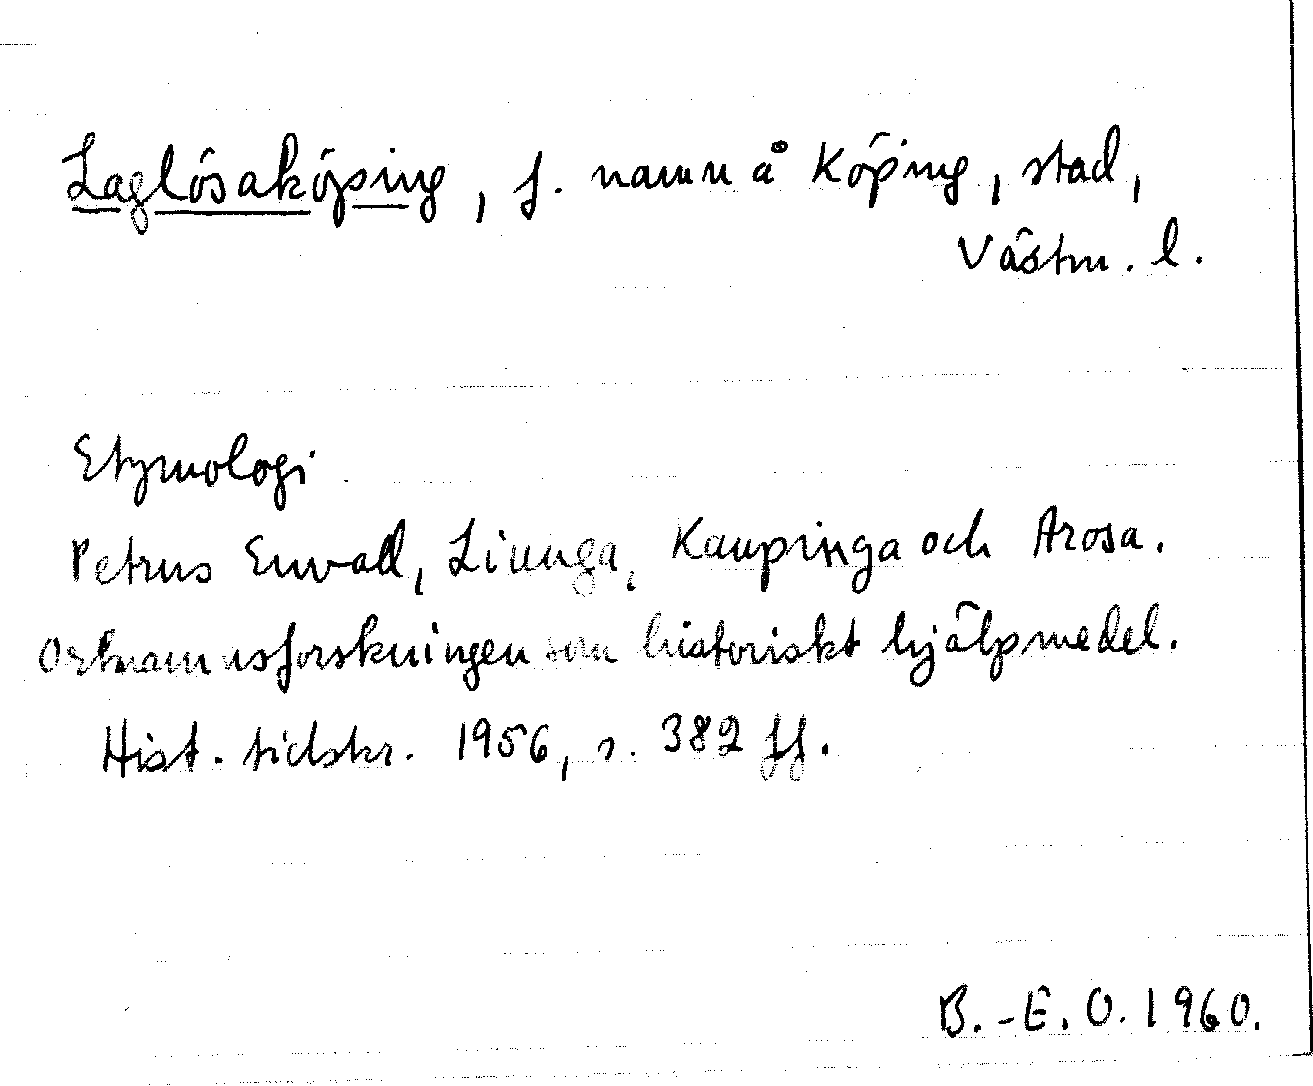 Laglösaköping, f. namn å Köping, stad,
Västm. l.
Etymologi
Petrus Envall, Liunga, Kaupinga och Arosa.
Ortnamnsforskningen som historiskt hjälpmedel.
Hist. tidskr. 1956, s. 382 ff.
B.-E. O. 1960.